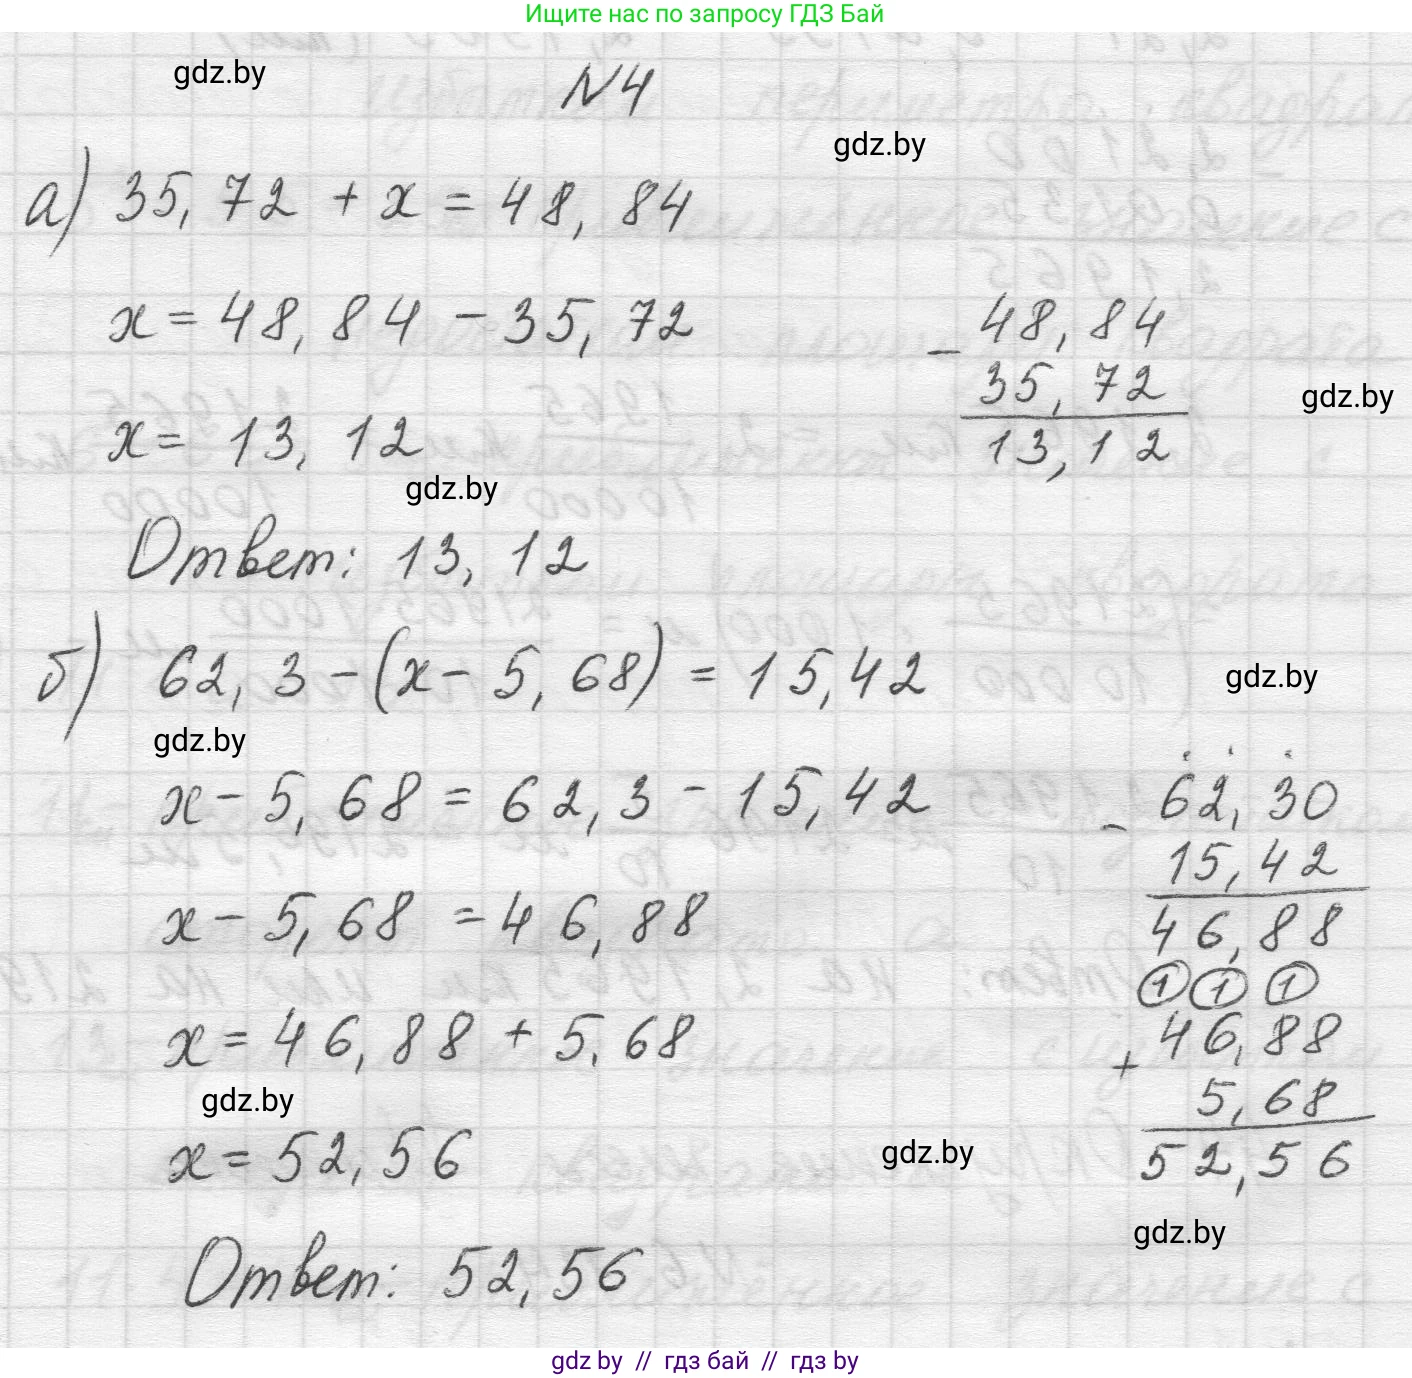 Ищите нас по запросу ГДЗ Бай
gdz.by
N4
gdz.by
а) 35,72 + x = 48,84
x = 48,84 - 35,72
- 48,84
35,72
13,12
gdz.by
x = 13,12
gdz.by
Ответ: 13,12
б) 62,3 - (x - 5,68) = 15,42
gdz.by
gdz.by
x - 5,68 = 62,3 - 15,42
- 62,30
15,42
46,88
x - 5,68 = 46,88
1 1 1
+ 46,88
5,68
52,56
x = 46,88 + 5,68
gdz.by
x = 52,56
gdz.by
gdz.by
Ответ: 52,56
gdz by // гдз бай // гдз by